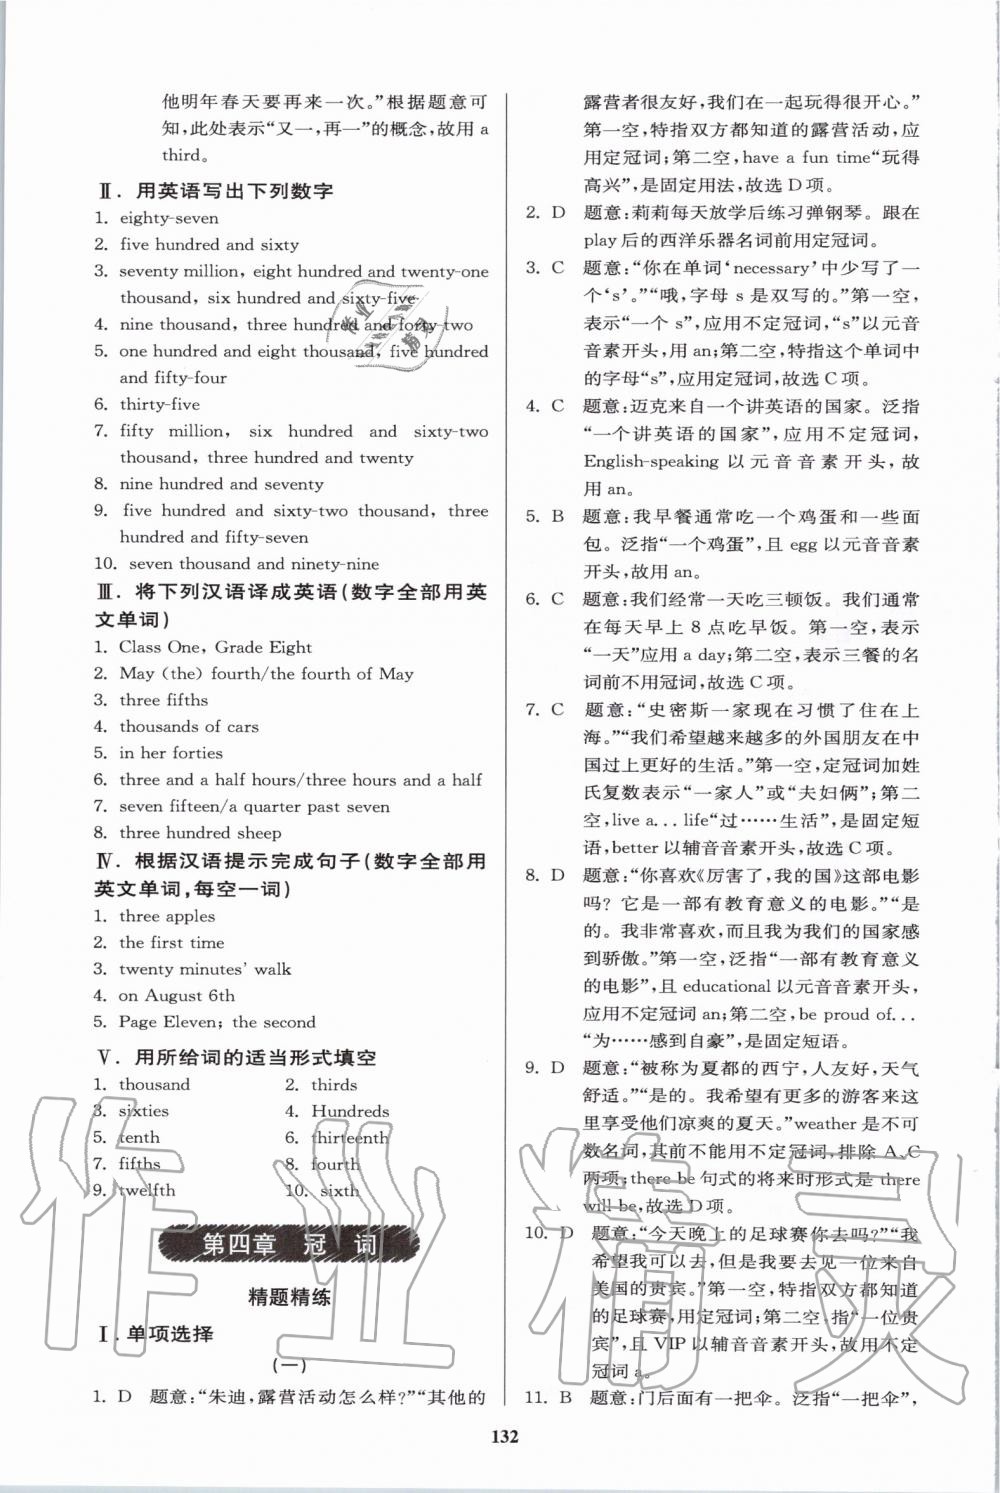 他明年春天要再来一次。”根据题意可
知，此处表示“又一，再一”的概念，故用 a
third。
Ⅱ．用英语写出下列数字
1. eighty-seven
2. five hundred and sixty
3. seventy million, eight hundred and twenty-one
thousand, six hundred and sixty-five
4. nine thousand, three hundred and forty-two
5. one hundred and eight thousand, five hundred
and fifty-four
6. thirty-five
7. fifty million, six hundred and sixty-two
thousand, three hundred and twenty
8. nine hundred and seventy
9. five hundred and sixty-two thousand, three
hundred and fifty-seven
10. seven thousand and ninety-nine
Ⅲ．将下列汉语译成英语(数字全部用英
文单词)
1. Class One, Grade Eight
2. May (the) fourth/the fourth of May
3. three fifths
4. thousands of cars
5. in her forties
6. three and a half hours/three hours and a half
7. seven fifteen/a quarter past seven
8. three hundred sheep
Ⅳ．根据汉语提示完成句子(数字全部用
英文单词，每空一词)
1. three apples
2. the first time
3. twenty minutes' walk
4. on August 6th
5. Page Eleven; the second
Ⅴ．用所给词的适当形式填空
1. thousand 2. thirds
3. sixties 4. Hundreds
5. tenth 6. thirteenth
7. fifths 8. fourth
9. twelfth 10. sixth
第四章 冠 词
精题精练
Ⅰ．单项选择
(一)
1. D 题意：“朱迪，露营活动怎么样？”“其他的
露营者很友好，我们在一起玩得很开心。”
第一空，特指双方都知道的露营活动，应
用定冠词；第二空，have a fun time“玩得
高兴”，是固定用法，故选 D 项。
2. D 题意：莉莉每天放学后练习弹钢琴。跟在
play 后的西洋乐器名词前用定冠词。
3. C 题意：“你在单词‘necessary’中少写了一
个‘s’。”“哦，字母 s 是双写的。”第一空，
表示“一个 s”，应用不定冠词，“s”以元音
音素开头，用 an；第二空，特指这个单词中
的字母“s”，应用定冠词，故选 C 项。
4. C 题意：迈克来自一个讲英语的国家。泛指
“一个讲英语的国家”，应用不定冠词，
English-speaking 以元音音素开头，故
用 an。
5. B 题意：我早餐通常吃一个鸡蛋和一些面
包。泛指“一个鸡蛋”，且 egg 以元音音素
开头，故用 an。
6. C 题意：我们经常一天吃三顿饭。我们通常
在每天早上 8 点吃早饭。第一空，表示
“一天”应用 a day；第二空，表示三餐的名
词前不用冠词，故选 C 项。
7. C 题意：“史密斯一家现在习惯了住在上
海。”“我们希望越来越多的外国朋友在中
国过上更好的生活。”第一空，定冠词加姓
氏复数表示“一家人”或“夫妇俩”；第二
空，live a... life“过……生活”，是固定短
语，better 以辅音音素开头，故选 C 项。
8. D 题意：“你喜欢《厉害了，我的国》这部电影
吗？它是一部有教育意义的电影。”“是
的。我非常喜欢，而且我为我们的国家感
到骄傲。”第一空，泛指“一部有教育意义
的电影”，且 educational 以元音音素开头，
应用不定冠词 an；第二空，be proud of...
“为……感到自豪”，是固定短语。
9. D 题意：“被称为夏都的西宁，人友好，天气
舒适。”“是的。我希望有更多的游客来这
里享受他们凉爽的夏天。”weather 是不可
数名词，其前不能用不定冠词，排除 A、C
两项；there be 句式的将来时形式是 there
will be，故选 D 项。
10. D 题意：“今天晚上的足球赛你去吗？”“我
希望我可以去，但是我要去见一位来自
美国的贵宾。”第一空，特指双方都知道
的足球赛，用定冠词；第二空，指“一位贵
宾”，且 VIP 以辅音音素开头，故用不定
冠词 a。
11. B 题意：门后面有一把伞。泛指“一把伞”，
132
作业精灵